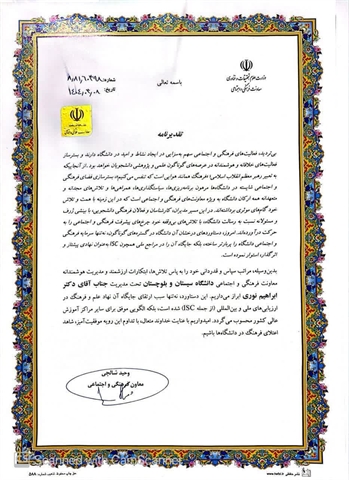 باسمه تعالی
وزارت علوم، تحقیقات و فناوری
معاونت فرهنگی و اجتماعی
شماره:
تاریخ:
تقدیرنامه
بی‌تردید، فعالیت‌های فرهنگی و اجتماعی سهم به‌سزایی در ایجاد نشاط و امید در دانشگاه دارند و بسترساز
فعالیت‌های خلاقانه و هوشمندانه در عرصه‌های گوناگون علمی و پژوهشی دانشجویان خواهد بود. از آنجا که
به تعبیر رهبر معظم انقلاب اسلامی «فرهنگ همانند هوایی است که تنفس می‌کنیم»، بسترسازی فضای فرهنگی
و اجتماعی شایسته در دانشگاه‌ها مرهون برنامه‌ریزی‌ها، سیاستگذاری‌ها، همراهی‌ها و تلاش‌های مجدانه و
متعهدانه همه ارکان دانشگاه به ویژه معاونت‌های فرهنگی و اجتماعی است که در این زمینه با همت و تلاش
خود گام‌های موثری برداشته‌اند. در این مسیر مدیران، کارشناسان و فعالان فرهنگی دانشجویی، با بینشی ژرف
و مسئولانه نسبت به رسالت دانشگاه، با تلاش‌های بی‌وقفه خود چرخ‌های پیشرفت فرهنگی و اجتماعی را به
حرکت درآورده‌اند. امروز، دستاوردهای درخشان آن دانشگاه در گستره‌های گوناگون، نه‌تنها سرمایه فرهنگی
و اجتماعی دانشگاه را پربارتر ساخته، بلکه جایگاه آن را در مراجع ملی همچون ISC به‌عنوان نهادی پیشتاز و
اثرگذار، استوار نموده است.
بدین‌وسیله، مراتب سپاس و قدردانی خود را به پاس تلاش‌ها، ابتکارات ارزشمند و مدیریت هوشمندانه
معاونت فرهنگی و اجتماعی دانشگاه سیستان و بلوچستان تحت مدیریت جناب آقای دکتر
ابراهیم نوری ابراز می‌داریم. این دستاورد، نه‌تنها سبب ارتقای جایگاه آن نهاد علم و فرهنگ در
ارزیابی‌های ملی و بین‌المللی (از جمله ISC) شده است، بلکه الگویی موفق برای سایر مراکز آموزش
عالی کشور محسوب می‌گردد. امیدواریم با عنایت خداوند متعال، با تداوم این رویه موفقیت‌آمیز، شاهد
اعتلای فرهنگ در دانشگاه‌ها باشیم.
وحید شالچی
معاون فرهنگی و اجتماعی
Scanned with CamScanner